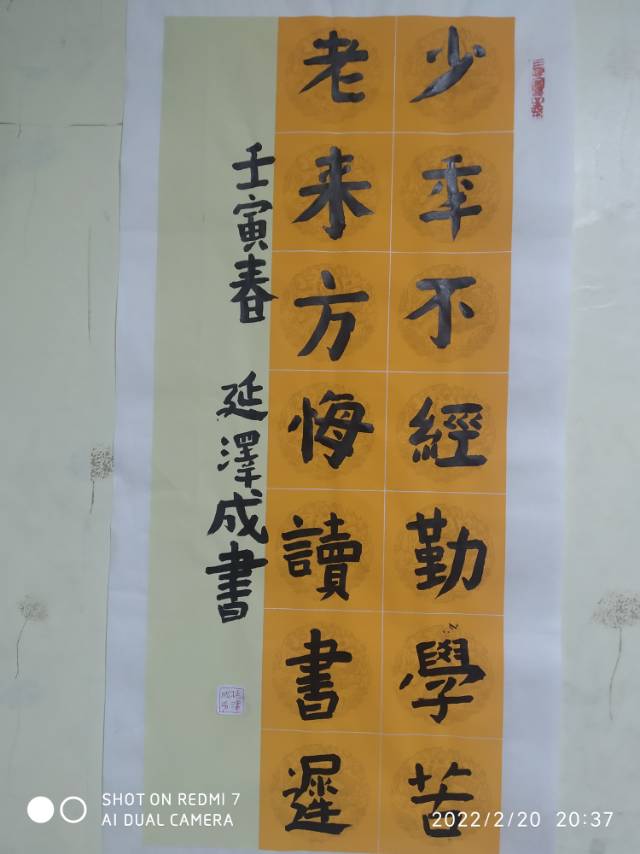 少年不經勤學苦
老来方悔讀書遲
壬寅春 延澤成書
SHOT ON REDMI 7
AI DUAL CAMERA
2022/2/20 20:37